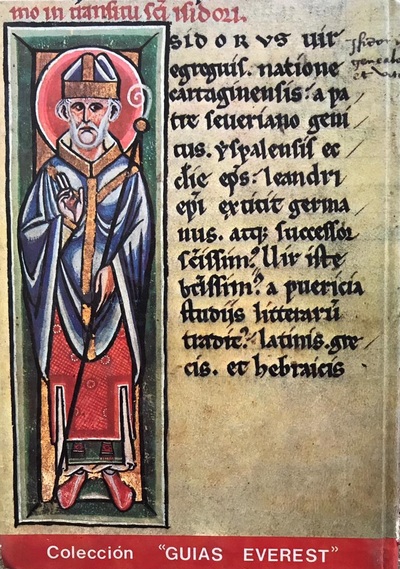 mo in transitu sci isidori.
SIDORUS vir
egregius. natione
cartaginensis: a pa
tre seueriano geni
tus. yspalensis ec
clie eps: leandri
epi extitit germa
nus. atq; successor
scissim? Vir iste
bcissim? a puericia
studijs litterarū
tradit?. latinis. gre
cis. et hebraicis
Isidori
genealo
et
Colección "GUIAS EVEREST"